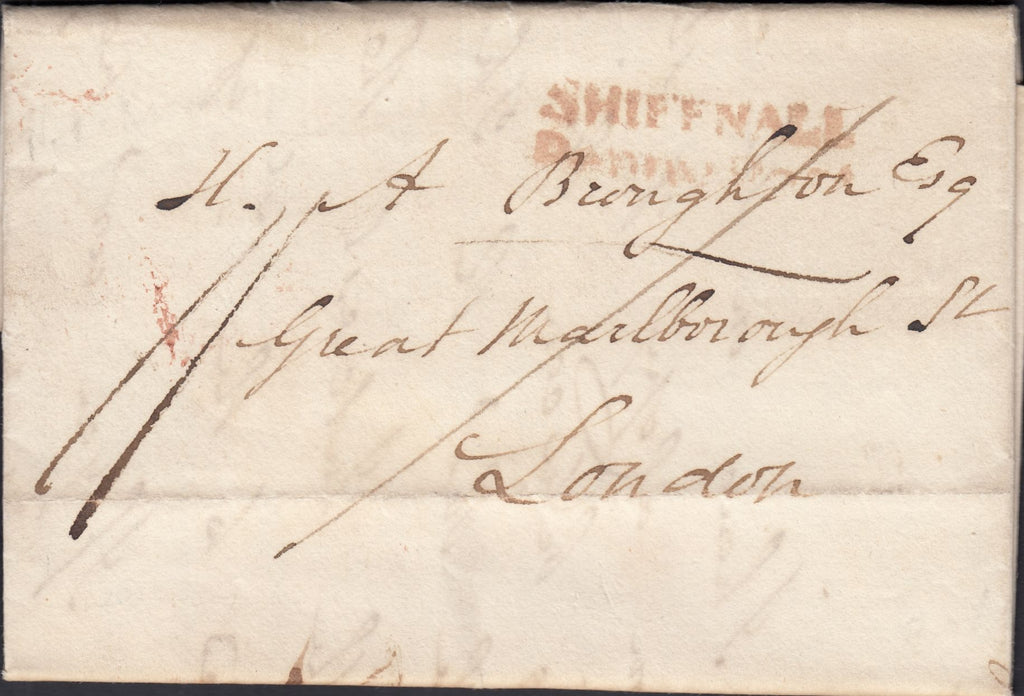 SHIFFNALL
H. A Broughton Esq
Great Marlborough St
London